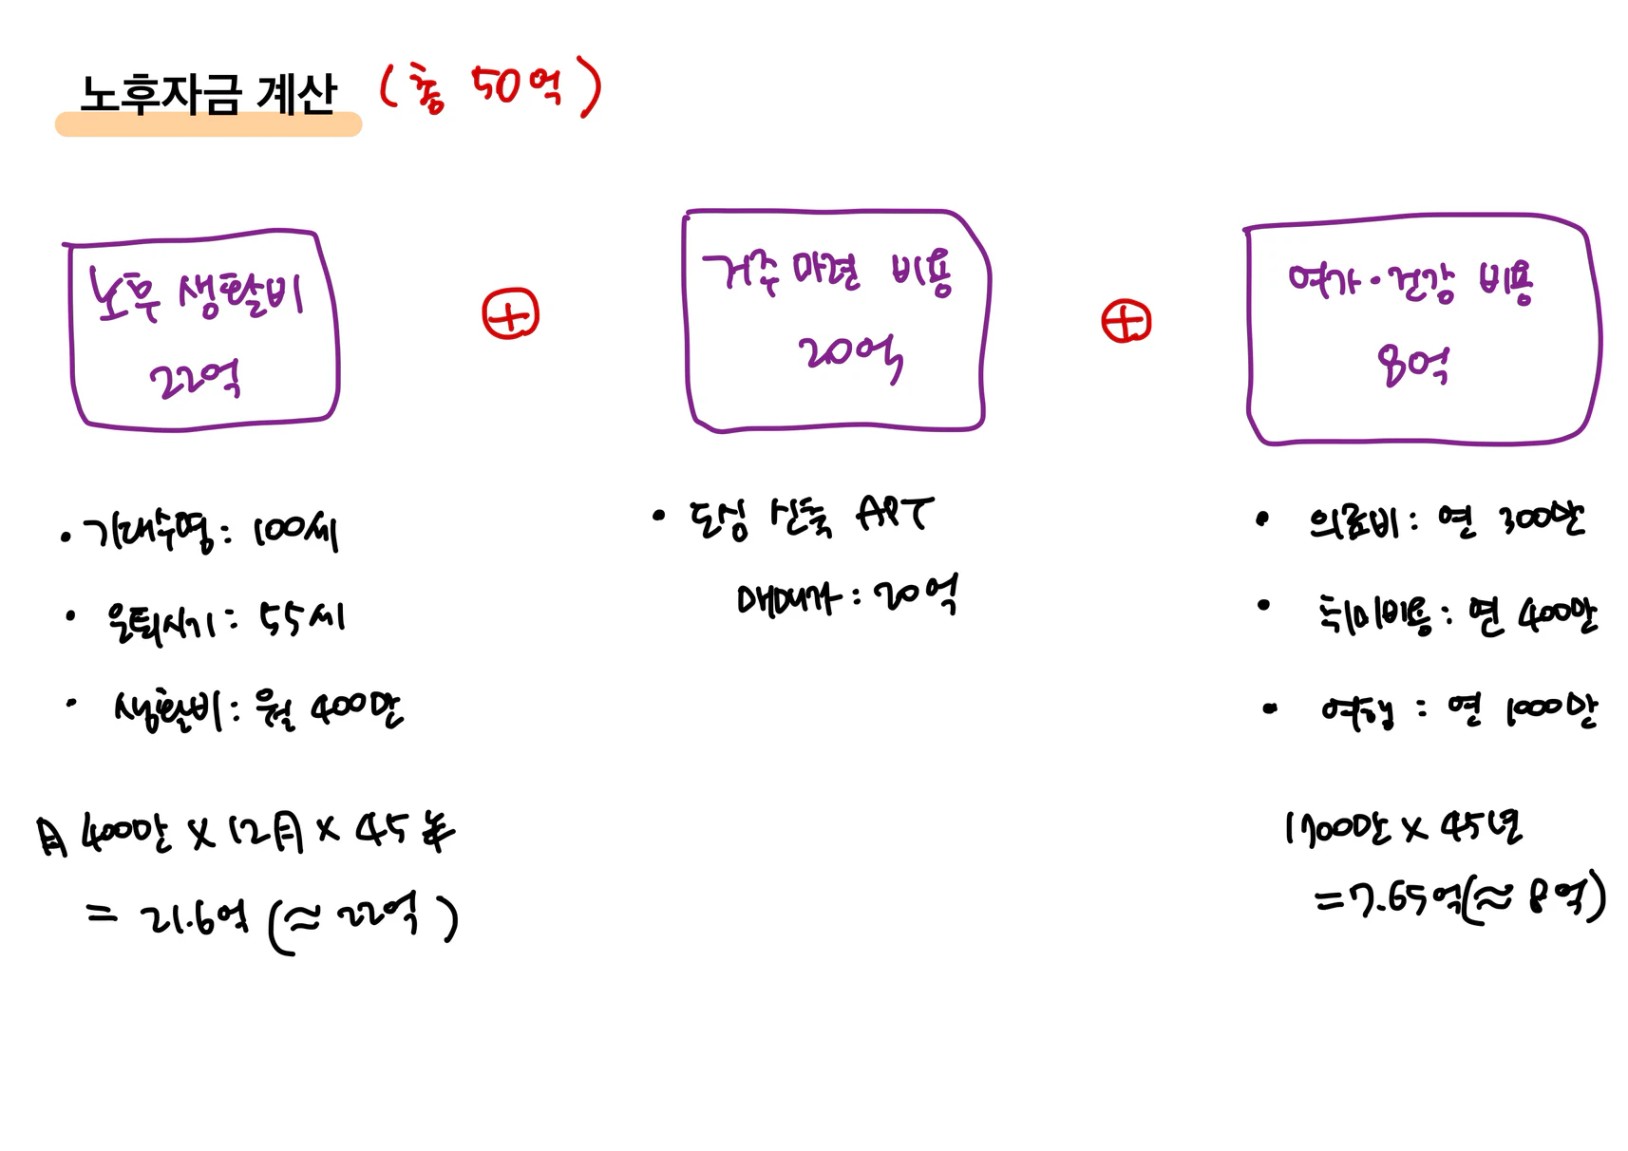 노후자금 계산 (총 50억)
노후 생활비
22억
⊕
거주 마련 비용
20억
⊕
여가·건강 비용
8억
• 기대수명: 100세
• 은퇴시기: 55세
• 생활비: 월 400만
月 400만 x 12月 x 45年
= 21.6억 (≈ 22억)
• 도심 신축 APT
매매가: 20억
• 의료비: 연 300만
• 취미비용: 연 400만
• 여행: 연 1000만
1700만 x 45년
= 7.65억 (≈ 8억)